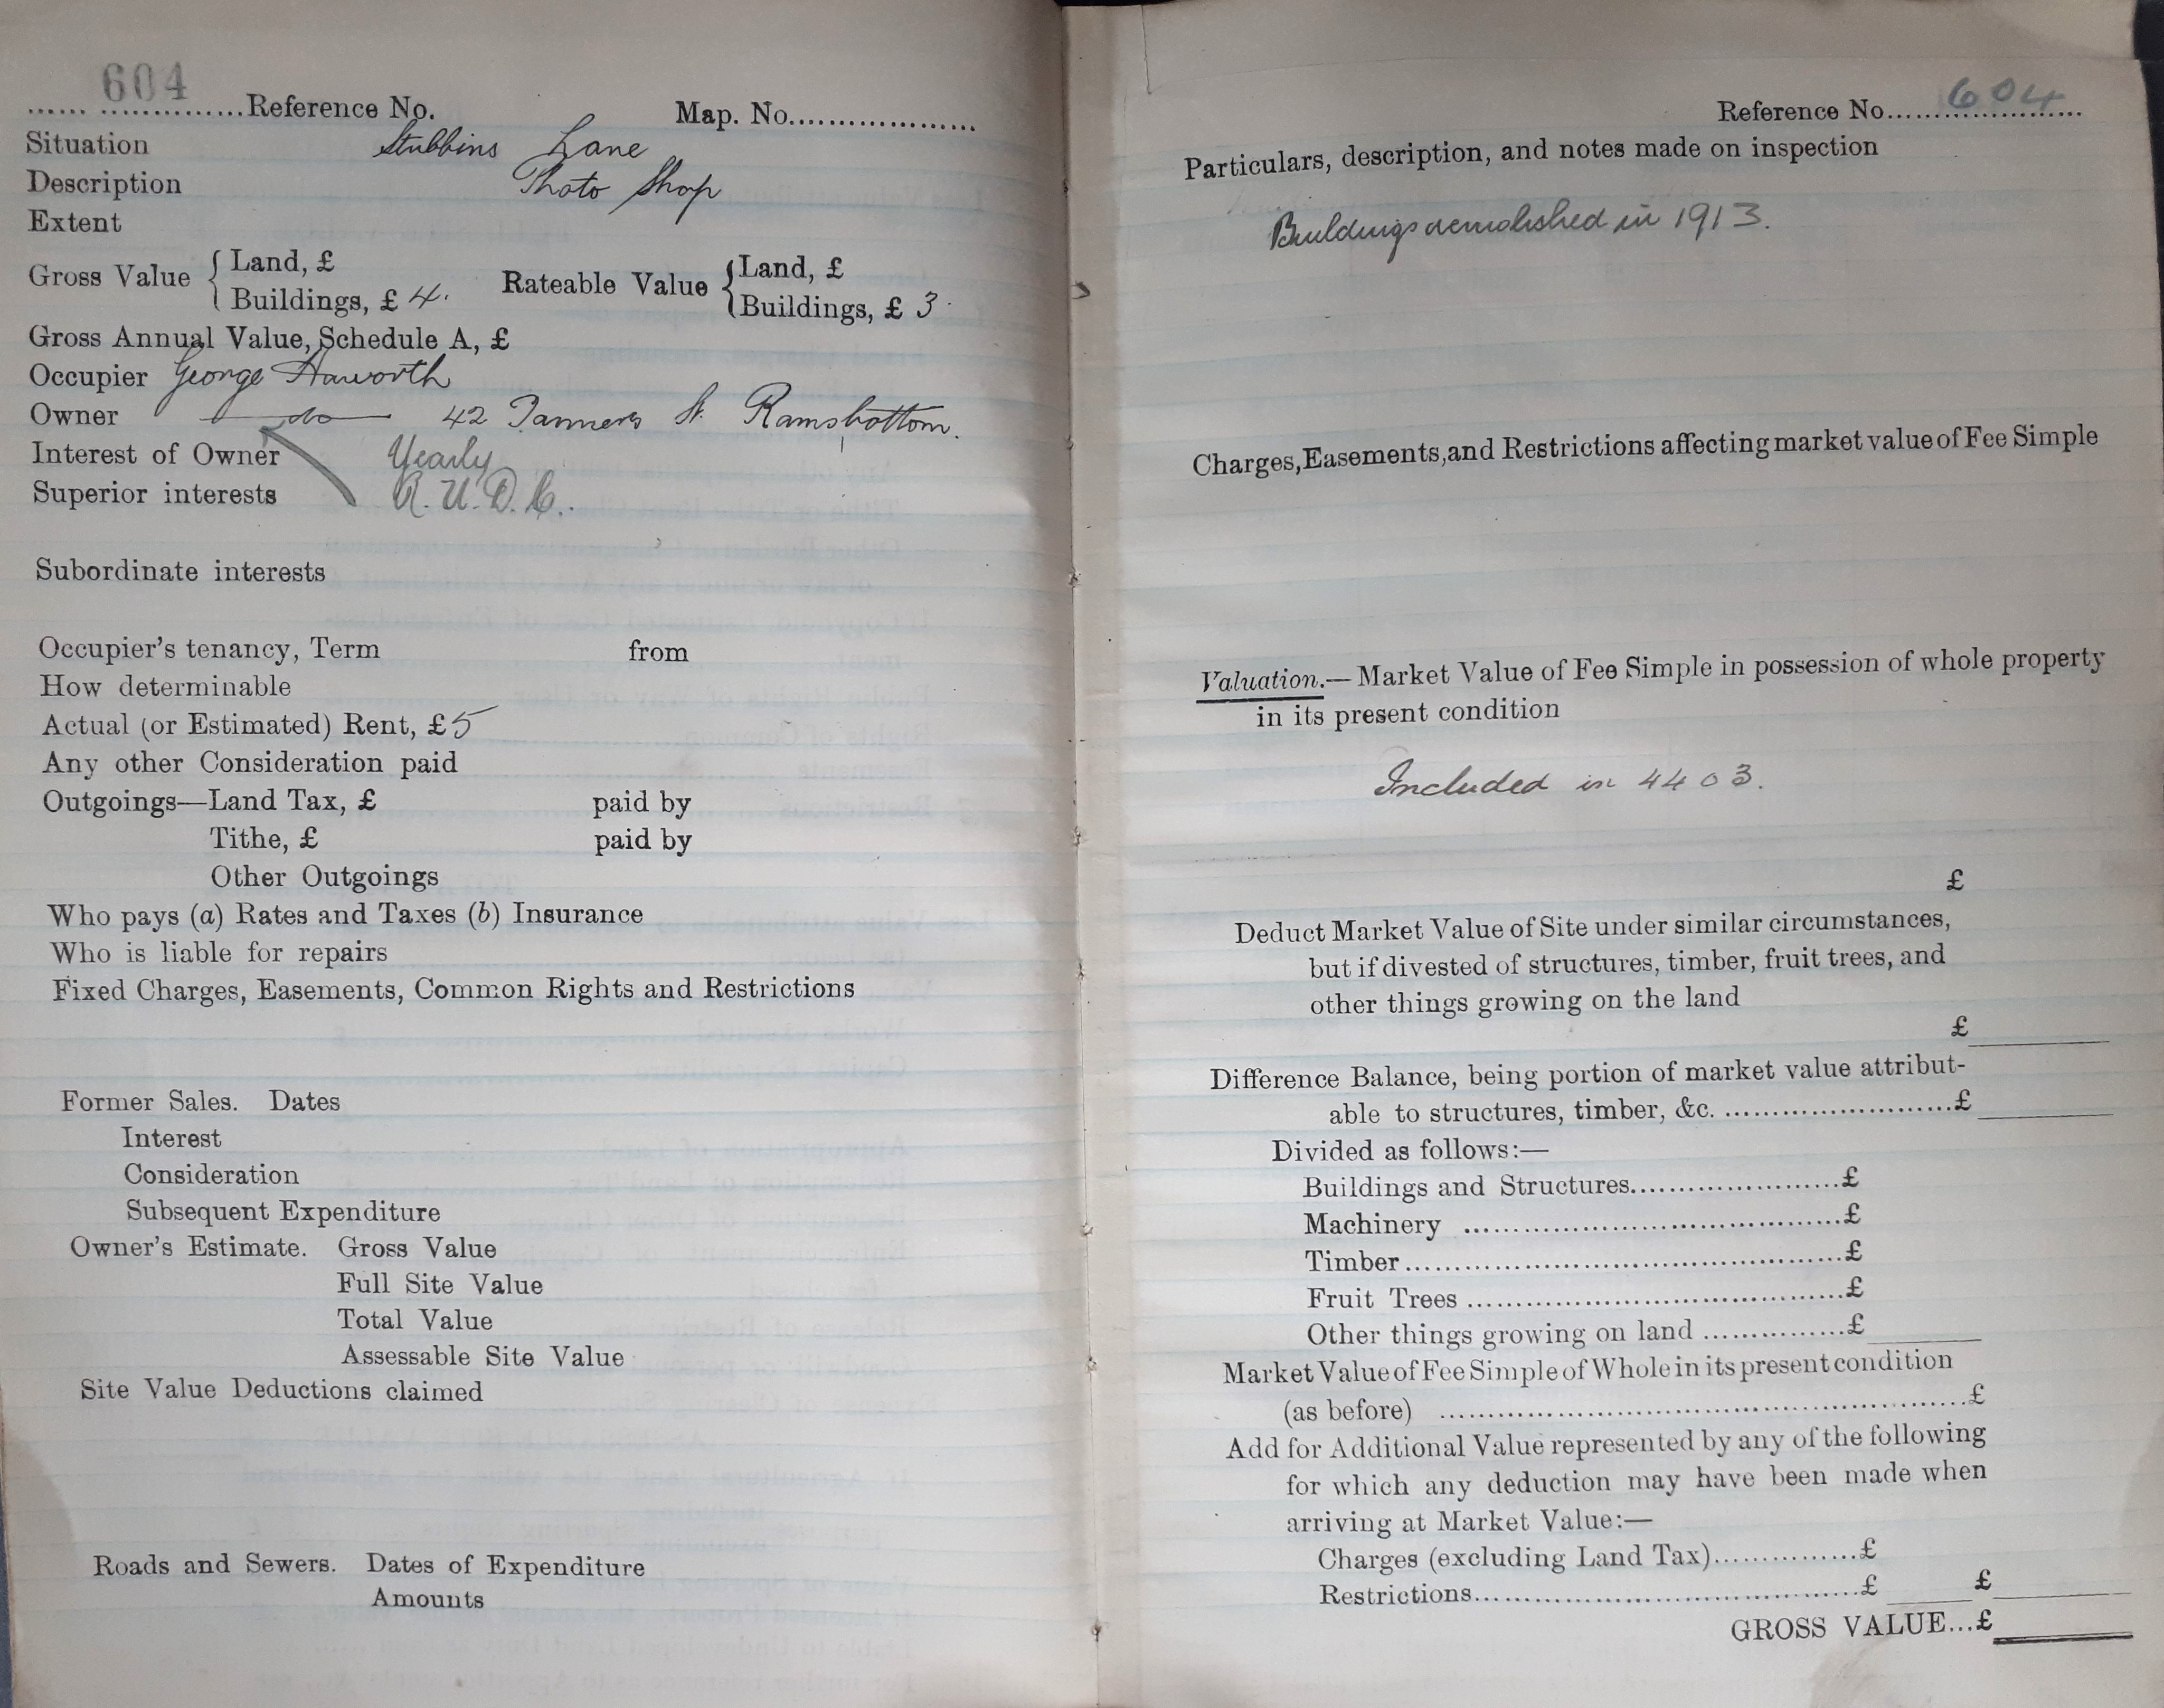 604
...... ..............Reference No. Map. No....................
Situation Stubbins Lane
Description Photo Shop
Extent
Gross Value { Land, £ Rateable Value { Land, £
Buildings, £ 4. Buildings, £ 3.
Gross Annual Value, Schedule A, £
Occupier George Haworth
Owner — do — 42 Tanners St. Ramsbottom.
Interest of Owner Yearly
Superior interests R.U.D.C.
Subordinate interests
Occupier's tenancy, Term from
How determinable
Actual (or Estimated) Rent, £ 5
Any other Consideration paid
Outgoings—Land Tax, £ paid by
Tithe, £ paid by
Other Outgoings
Who pays (a) Rates and Taxes (b) Insurance
Who is liable for repairs
Fixed Charges, Easements, Common Rights and Restrictions
Former Sales. Dates
Interest
Consideration
Subsequent Expenditure
Owner's Estimate. Gross Value
Full Site Value
Total Value
Assessable Site Value
Site Value Deductions claimed
Roads and Sewers. Dates of Expenditure
Amounts
Reference No. 604
Particulars, description, and notes made on inspection
Buildings demolished in 1913.
Charges, Easements, and Restrictions affecting market value of Fee Simple
Valuation.— Market Value of Fee Simple in possession of whole property
in its present condition
Included in 4403.
£
Deduct Market Value of Site under similar circumstances,
but if divested of structures, timber, fruit trees, and
other things growing on the land
£
Difference Balance, being portion of market value attribut-
able to structures, timber, &c. ..........................£
Divided as follows:—
Buildings and Structures.......................£
Machinery .........................................£
Timber................................................£
Fruit Trees .........................................£
Other things growing on land ...............£
Market Value of Fee Simple of Whole in its present condition
(as before) ..........................................................£
Add for Additional Value represented by any of the following
for which any deduction may have been made when
arriving at Market Value:—
Charges (excluding Land Tax)................£
Restrictions..........................................£ £
GROSS VALUE...£